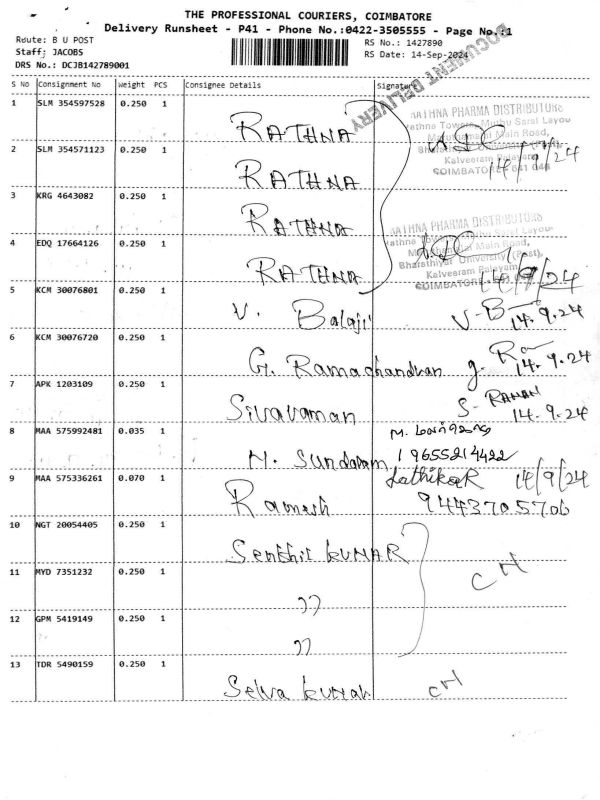 THE PROFESSIONAL COURIERS, COIMBATORE
Delivery Runsheet - P41 - Phone No.:0422-3505555 - Page No.:1
Route: B U POST RS No.: 1427890
Staff: JACOBS RS Date: 14-Sep-2024
DRS No.: DCJB142789001
DOCUMENT DELIVERY
S No Consignment No Weight PCS Consignee Details Signature
1 SLM 354597528 0.250 1 RATHNA
RATHNA PHARMA DISTRIBUTORS
Main Road,
Kalveeram Palayam
COIMBATORE 641 046
14/9/24
2 SLM 354571123 0.250 1 RATHNA
3 KRG 4643082 0.250 1 RATHNA
RATHNA PHARMA DISTRIBUTORS
Main Road,
Bharathiyar University (Post),
Kalveeram Palayam
14/9/24
4 EDQ 17664126 0.250 1 RATHNA
5 KCM 30076801 0.250 1 V. Balaji V-B 14.9.24
6 KCM 30076720 0.250 1 G. Ramachandran 14.9.24
7 APK 1203109 0.250 1 Sivaraman S- RAMAN 14.9.24
8 MAA 575992481 0.035 1 M. Sundaram M. 9655214422
9 MAA 575336261 0.070 1 Ramesh LathikaR 14/9/24
9443705706
10 NGT 20054405 0.250 1 Senthil kUMAR
11 MYD 7351232 0.250 1 ''
12 GPM 5419149 0.250 1 ''
13 TDR 5490159 0.250 1 Selva kumar